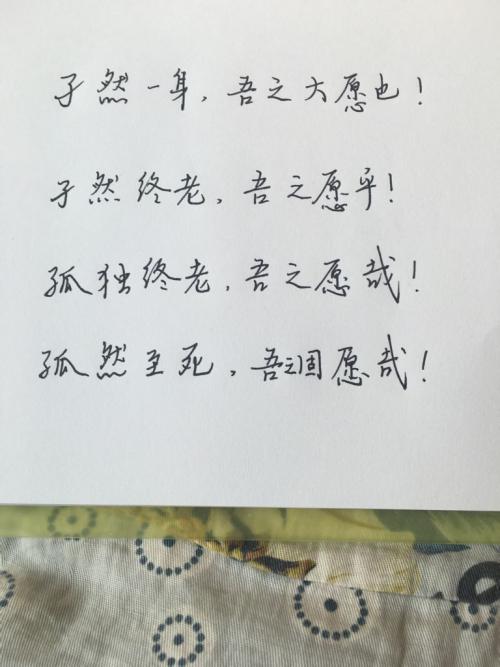 孑然一身，吾之大愿也！
孑然终老，吾之愿乎！
孤独终老，吾之愿哉！
孤然至死，吾之固愿哉！